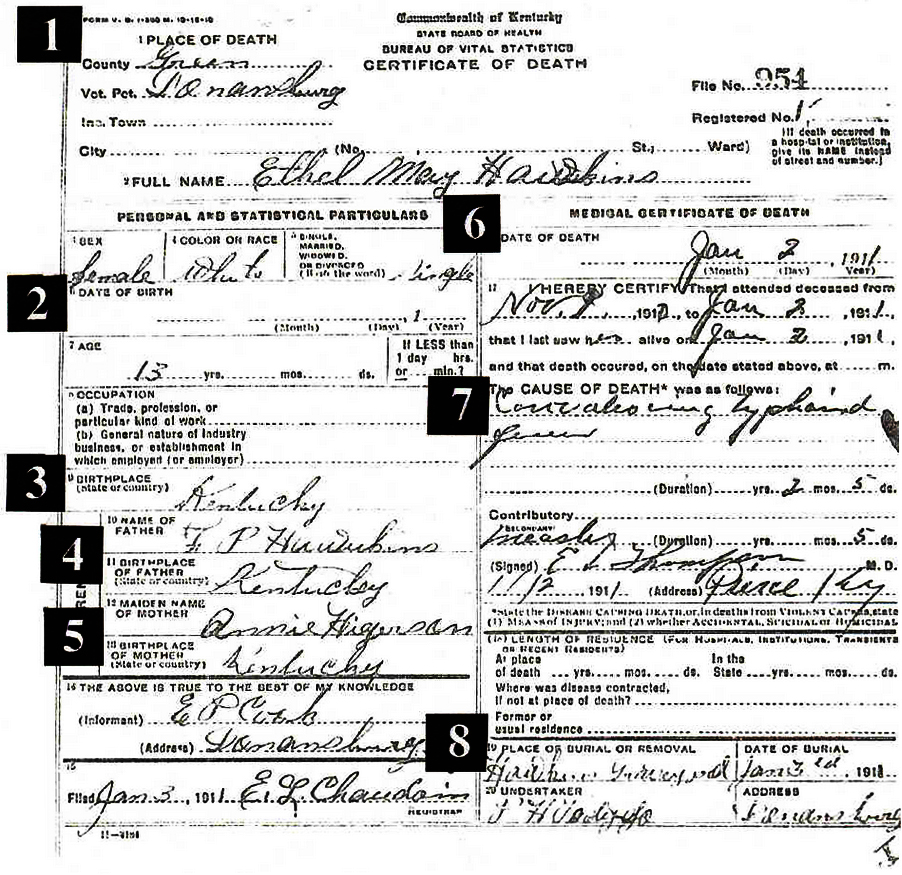 1
FORM V. S. 1-500 M. 10-15-10
Commonwealth of Kentucky
STATE BOARD OF HEALTH
BUREAU OF VITAL STATISTICS
CERTIFICATE OF DEATH
1 PLACE OF DEATH
County Green
Vot. Pct. Donansburg
Inc. Town
File No. 954
Registered No. 1
City (No. St.; Ward)
(If death occurred in
a hospital or institution,
give its NAME instead
of street and number.)
2 FULL NAME Ethel May Hawkins
PERSONAL AND STATISTICAL PARTICULARS
3 SEX
female
4 COLOR OR RACE
White
5 SINGLE,
MARRIED,
WIDOWED,
OR DIVORCED
(Write the word) Single
2
6 DATE OF BIRTH
, 1
(Month) (Day) (Year)
7 AGE
13 yrs. mos. ds.
If LESS than
1 day hrs.
or min.?
8 OCCUPATION
(a) Trade, profession, or
particular kind of work
(b) General nature of industry
business, or establishment in
which employed (or employer)
3
9 BIRTHPLACE
(State or country)
Kentucky
4
10 NAME OF
FATHER
F P Hawkins
11 BIRTHPLACE
OF FATHER
(State or country)
Kentucky
5
12 MAIDEN NAME
OF MOTHER
Annie Higerson
13 BIRTHPLACE
OF MOTHER
(State or country)
Kentucky
14 THE ABOVE IS TRUE TO THE BEST OF MY KNOWLEDGE
(Informant) E P Cook
(Address) Donansburg
15
Filed Jan 3, 1911 E. L. Chaudoin
REGISTRAR
11-3184
6
MEDICAL CERTIFICATE OF DEATH
DATE OF DEATH
Jan 2, 1911
(Month) (Day) Year)
17 I HEREBY CERTIFY, That I attended deceased from
Nov. , 191 , to Jan 2, 1911,
that I last saw her alive on Jan 2, 1911,
and that death occurred, on the date stated above, at m.
7
The CAUSE OF DEATH* was as follows:
Convalescing typhoid
fever
(Duration) yrs. 2 mos. 5 ds.
Contributory
SECONDARY
measles (Duration) yrs. mos. 5 ds.
(Signed) E L Thompson M. D.
1/2, 1911 (Address) Pierce Ky
*State the DISEASE CAUSING DEATH, or, in deaths from VIOLENT CAUSES, state
(1) MEANS OF INJURY; and (2) whether ACCIDENTAL, SUICIDAL or HOMICIDAL
18 LENGTH OF RESIDENCE (FOR HOSPITALS, INSTITUTIONS, TRANSIENTS
OR RECENT RESIDENTS)
At place of death yrs. mos. ds. In the State yrs. mos. ds.
Where was disease contracted,
if not at place of death?
Former or
usual residence
8
19 PLACE OF BURIAL OR REMOVAL
Hawkins Graveyard
DATE OF BURIAL
Jan 3rd, 1911
20 UNDERTAKER
ADDRESS
Donansburg